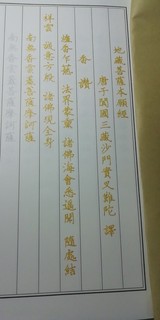 地藏菩薩本願經
唐于闐國三藏沙門實叉難陀 譯
香讚
爐香乍爇 法界蒙熏 諸佛海會悉遙聞 隨處結
祥雲 誠意方殷 諸佛現全身
南無香雲蓋菩薩摩訶薩
南無香雲蓋菩薩摩訶薩